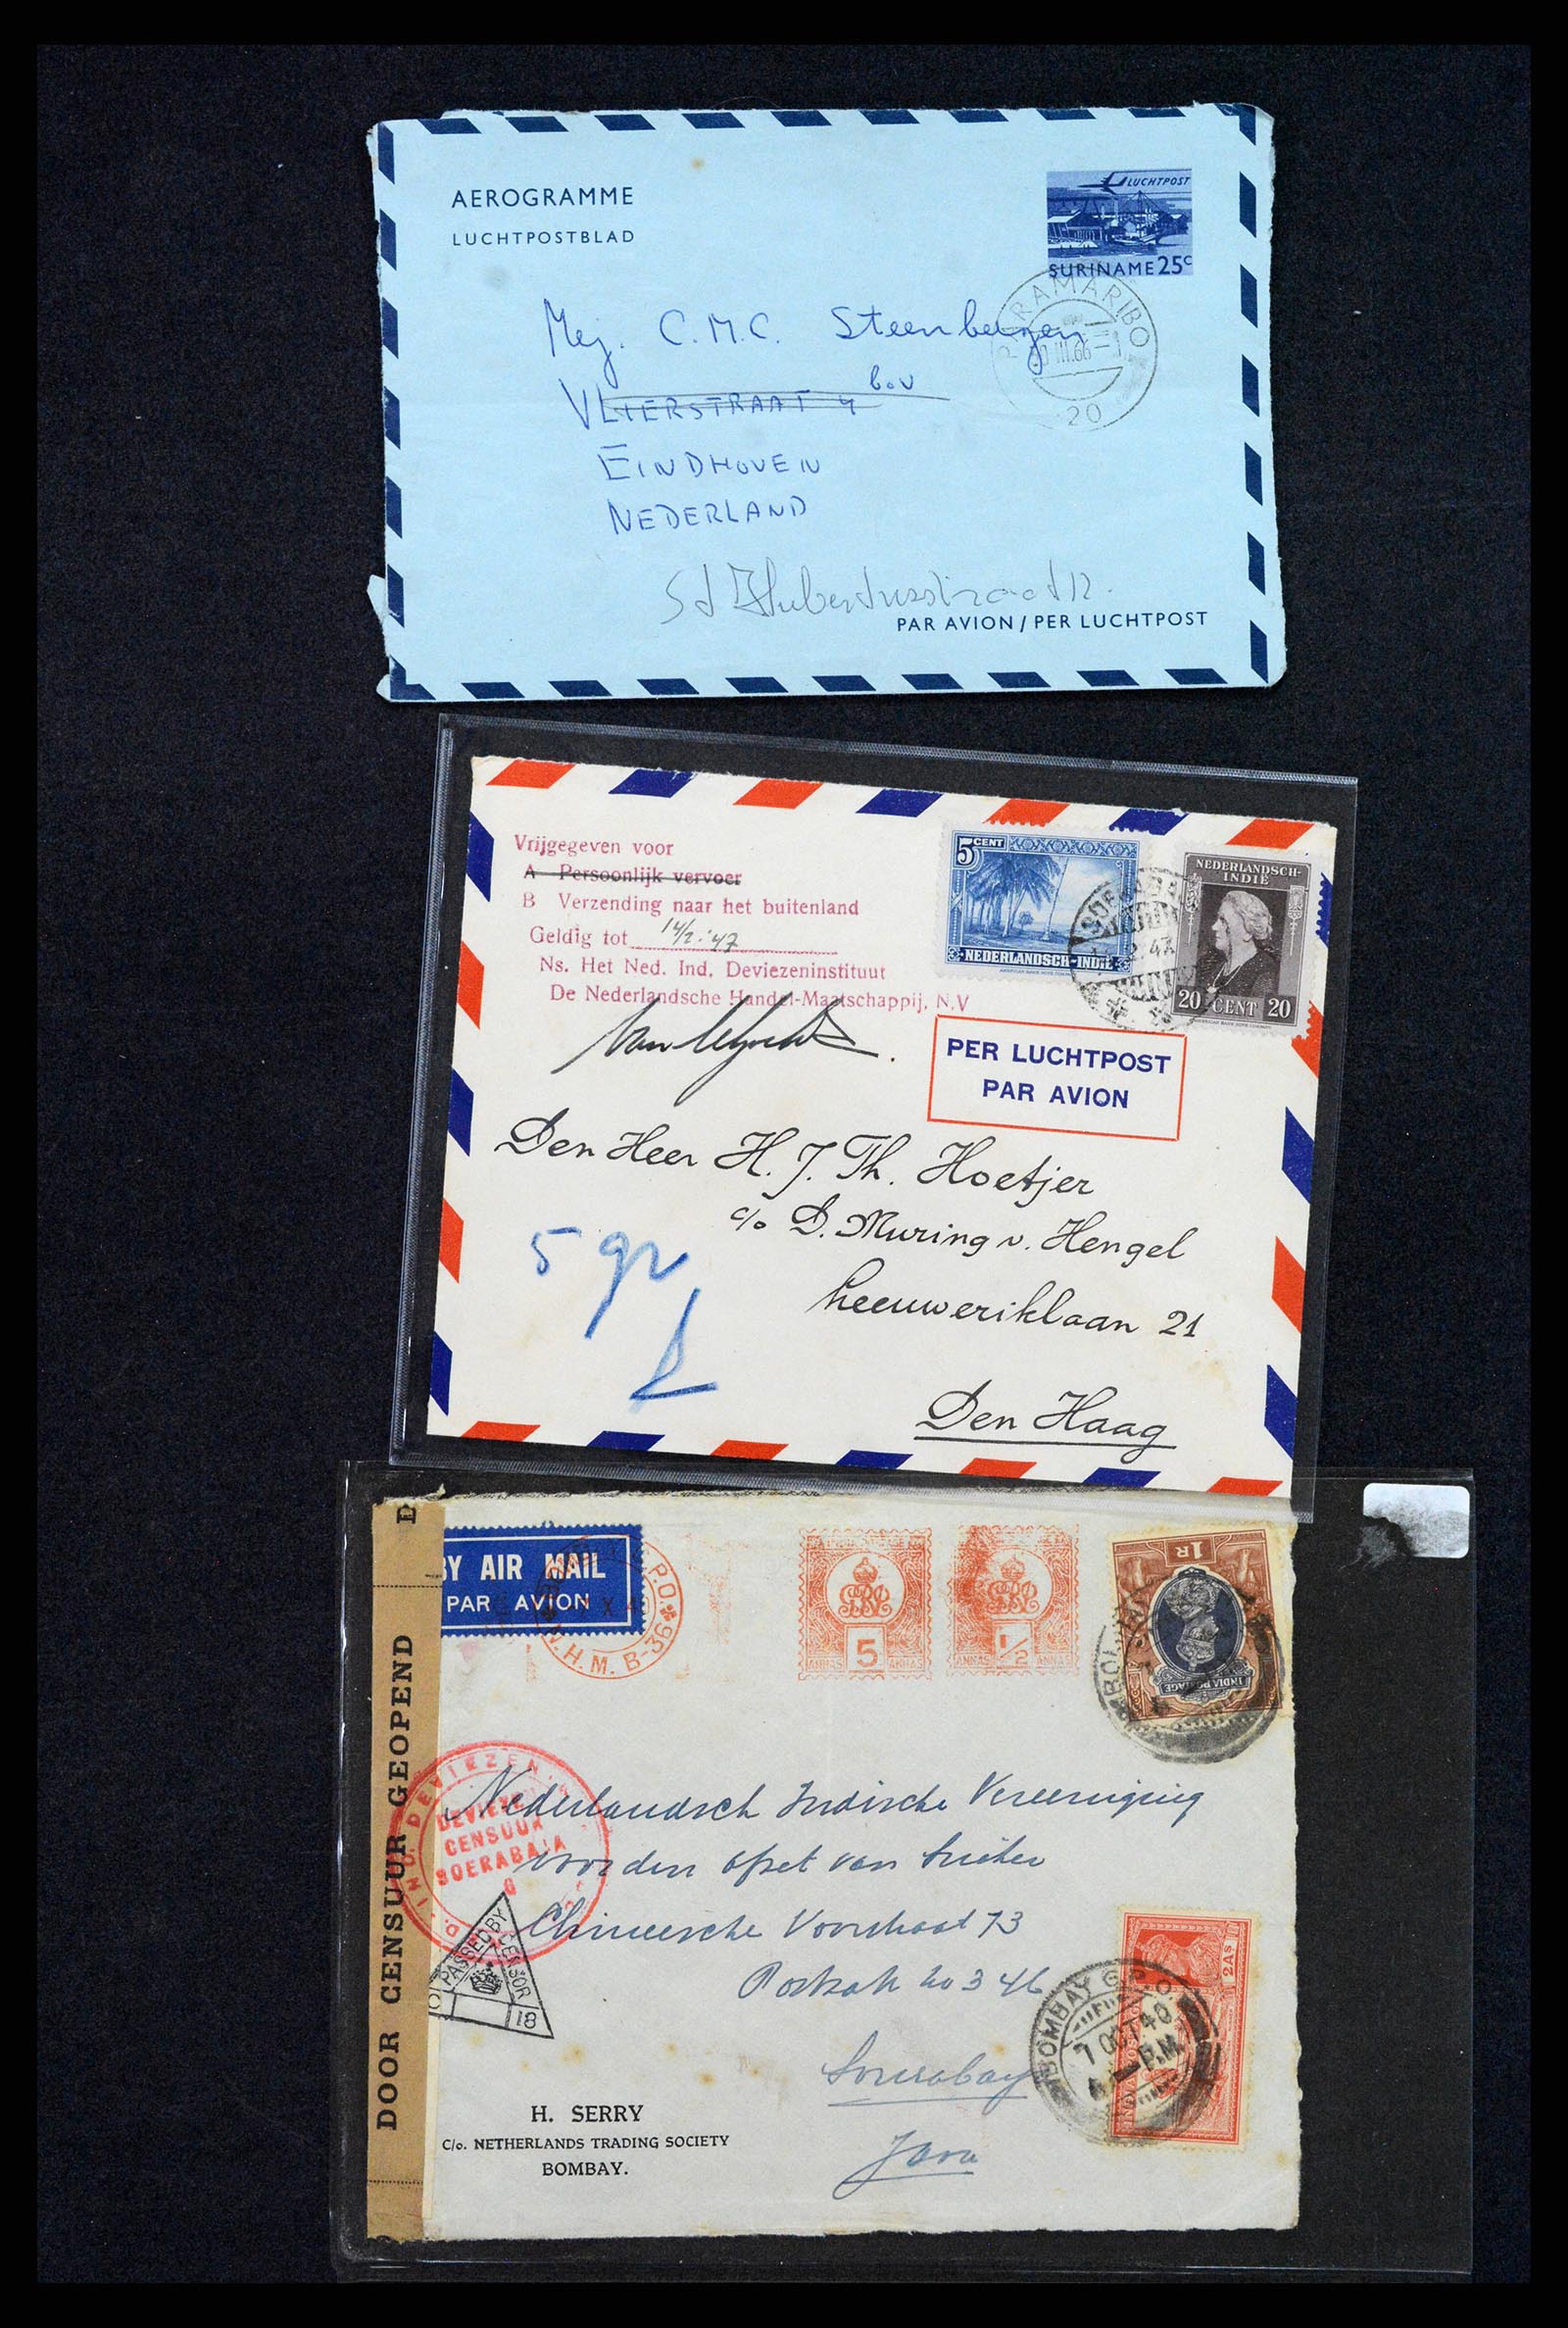 AEROGRAMME
LUCHTPOSTBLAD
LUCHTPOST
SURINAME 25c
PARAMARIBO
III.66
20
Mej. C.M.C. Steenbergen
VLIERSTRAAT 4 bov
EINDHOVEN
NEDERLAND
St Hubertusstraat 12.
PAR AVION / PER LUCHTPOST
Vrijgegeven voor
A Persoonlijk vervoer
B Verzending naar het buitenland
Geldig tot 14/2-'47
Ns. Het Ned. Ind. Deviezeninstituut
De Nederlandsche Handel-Maatschappij, N.V
5 CENT
NEDERLANDSCH-INDIË
NEDERLANDSCH-
INDIË
20 CENT 20
PER LUCHTPOST
PAR AVION
Den Heer H. J. Th. Hoetjer
c/o D. Muring v. Hengel
Leeuweriklaan 21
Den Haag
5 gr
DOOR CENSUUR GEOPEND D
BY AIR MAIL
PAR AVION
P.O.
N.H.M. B-36
5
ANNAS ANNAS
1/2
ANNAS ANNAS
1R
INDIA POSTAGE
IND. DEVIEZEN
DEVIEZEN
CENSUUR
SOERABAJA
PASSED BY
CENSOR
18
Nederlandsch Indische Vereeniging
voor den afzet van Suiker
Chineesche Voorstraat 73
Postzak No 346
Sourabaya
Java
2AS
BOMBAY G.P.O.
7 OCT 40
P.M.
H. SERRY
C/o. NETHERLANDS TRADING SOCIETY
BOMBAY.